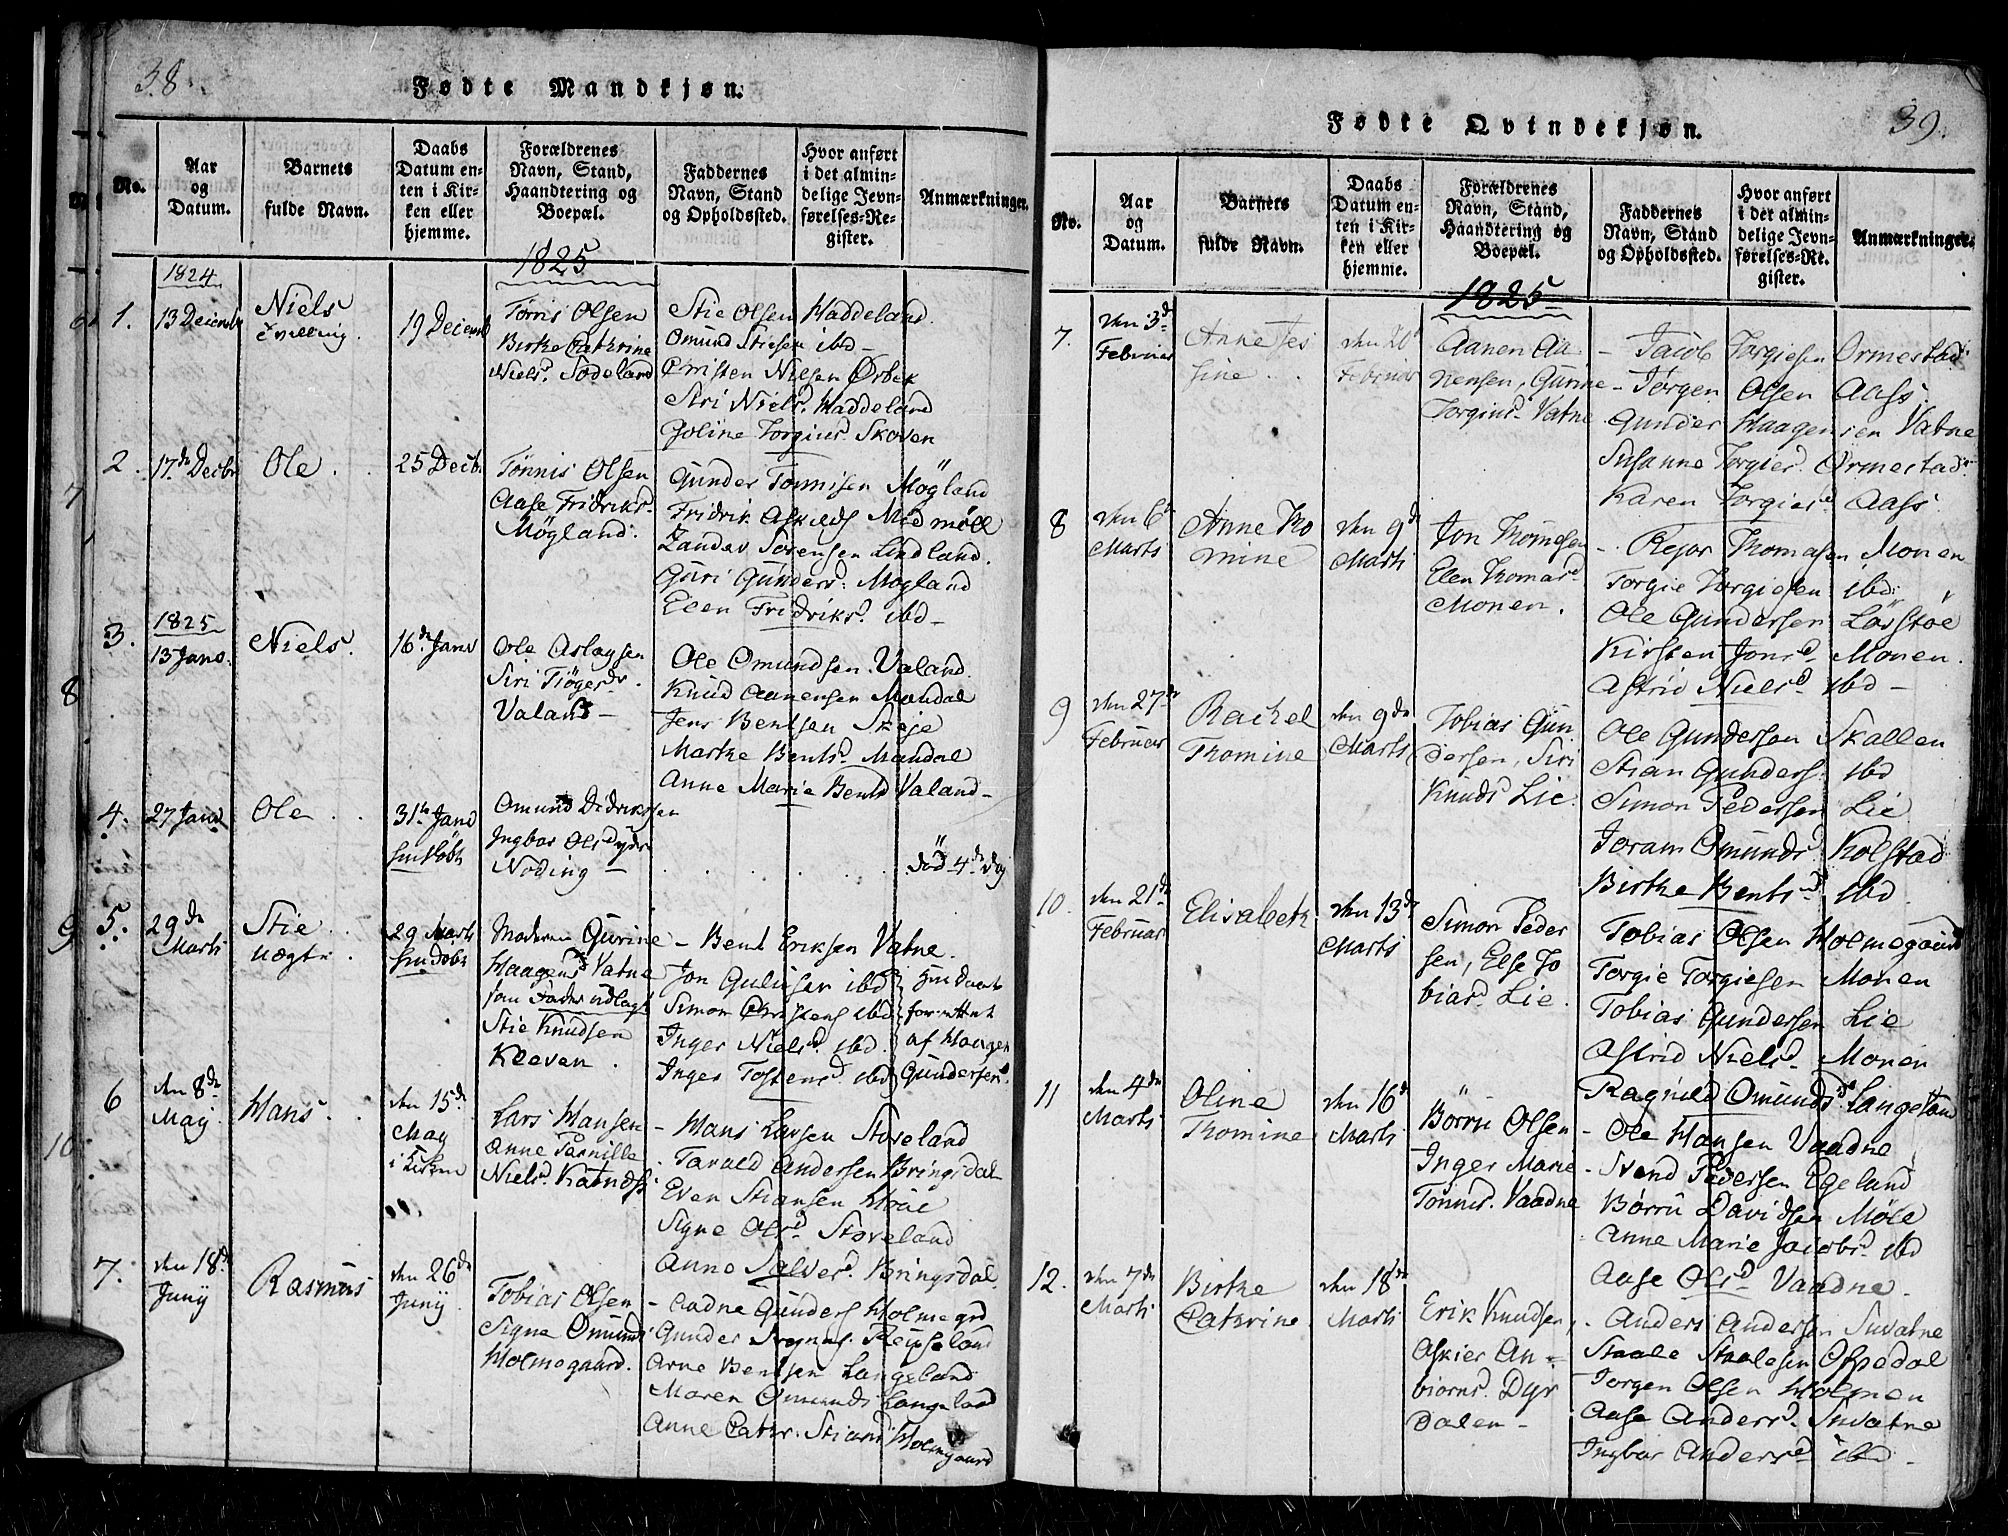 38.
Fødte Mandkjøn.
No.
Aar og Datum.
Barnets fulde Navn.
Daabs Datum enten i Kirken eller hjemme.
Forældrenes Navn, Stand, Haandtering og Boepæl.
Faddernes Navn, Stand og Opholdssted.
Hvor anført i det almindelige Jevnførelses-Register.
Anmærkninger.
1825
1824
1. 13 Decemb Niels Tvilling. 19 Decemb
Tørris Olsen
Birke Cathrine
Niels. Sødeland
Stie Olsen Haddeland.
Omund Stiesen ibd
Christen Nielsen Ørbek
Siri Niels. Haddeland
Joline Torgius. Skoven
2. 17de Decbr Ole 25 Decb.
Tønnis Olsen
Aase Fridriks.
Møgland.
Gunder Tønnisen Møgland
Fridrik Askilds Midmøll
Zander Sørensen Lindland.
Guri Gunders. Møgland
Elen Fridriks. ibd
1825
3. 13 Janv. Niels. 16de Janv
Ole Aslagsen
Siri Tiøgersdr.
Valand
Ole Omundsen Valand
Knud Aanensen Mandal
Jens Bentsen Skeje
Marthe Bents. Mandal
Anne Marie Bentsd Valand
4. 27 Janv Ole 31te Janv
hmdøbt
Omund Didriksen
Ingbor Olsd
Noding
død 4de Dag
5. 29de Marti Stie uægte 29 Marti
hmdøbt
Moderen Gurine
Haagensd Vatne
som Fader udlagt
Stie Knudsen
Kleven.
Bent Eriksen Vatne.
Jon Gulufsen ibd
Simon Christens ibd
Inger Nielsd. ibd.
Inger Tostensd. ibd
hmdaabs
forrettet
af Haagen
Gundersen.
6 den 8de May Hans. den 15de May i Kirken
Lars Hansen
Anne Pernille
Nielsd.
Hans Larsen Støveland
Tarald Andersen Bringsdal
Even Stiansen Høie
Signe Olsd Støveland
Anne Salvesd. Bringsdal
7. den 18de Junij Rasmus den 26de Junij
Tobias Olsen
Signe Omunds
Holmegaard.
Aadne Gunders Holmegrd
Gunder Reipseland
Arne Bentsen Langeland
Maren Omunds Langeland
Anne Cathr. Stians Holmegaard
39.
Fødte Qvindekjøn.
No.
Aar og Datum.
Barnets fulde Navn.
Daabs Datum enten i Kirken eller hjemme.
Forældrenes Navn, Stand, Haandtering og Boepæl.
Faddernes Navn, Stand og Opholdssted.
Hvor anført i det almindelige Jevnførelses-Register.
Anmærkninger.
1825
7. den 3de Februar Anne Jessine den 20de Februar
Aanen Aa
nensen, Gurine
Torgiusd. Vatne
Jacob Torgiesen Ormestad
Jørgen Olsen Aass.
Gunder Haagensen Vatne
Susanne Torgiesd. Ormestad
Karen Torgiesd. Aass.
8 den 6te Marts Anne Thomine den 9de Marti
Jon Thomesen
Elen Thomasd.
Monen.
Rejar Thomasen Monen
Torgie Torgiesen ibd.
Ole Gundersen Løsstøe
Kirsten Jonsd. Monen.
Astrid Nielsd. ibd
9 den 27de Februar Rachel Thomine den 9de Marts
Tobias Gun
dersen, Siri
Knuds Lie.
Ole Gundersen Skallen
Stian Gunders. ibd
Simon Pedersen Lie
Joram Omunds. Kolstad
Birthe Bentsd ibd
10. den 21de Februar Elisabeth den 13de Marts
Simon Peder
sen, Else To
biasd. Lie.
Tobias Olsen Holmegaard
Torgie Torgiesen Monen
Tobias Gundersen Lie
Astrid Nielsd. Monen
Ragnild Omundsd. Langeland
11 den 4de Marti Oline Thomine den 16de Marti
Børru Olsen
Inger Marie
Tønnisd. Vaadne
Ole Hansen Vaadne
Svend Pedersen Egeland
Børru Davidsen Møle
Anne Marie Jacobs. ibd
Aase Olsd Vaadne.
12. den 7de Marti Birthe Cathrine den 18de Marti
Erik Knudsen,
Askier An=
biørnsd. Dyr
Dalen
Anders Andersen Suvatne
Staale Staalesen Ospedal
Jørgen Olsen Holmen
Aase Andersd. Suvatne
Ingbor Andersd ibd